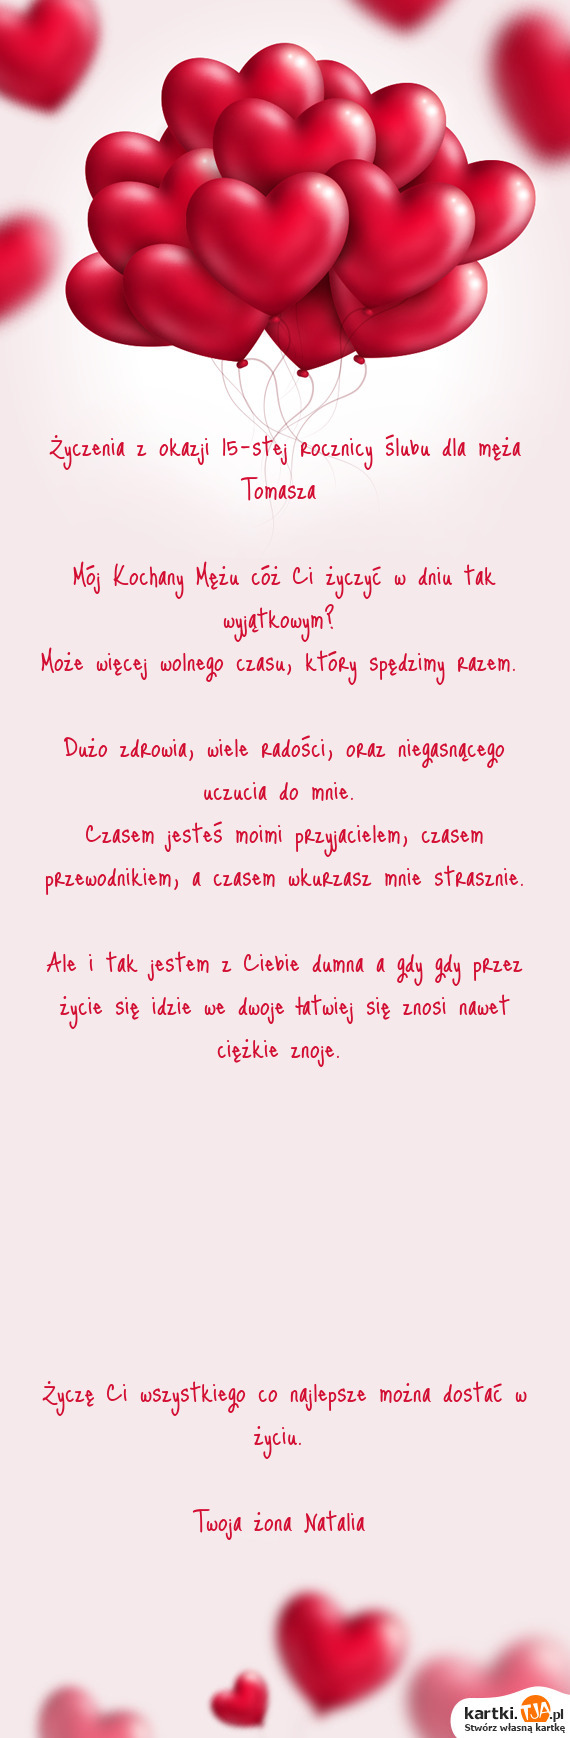 Życzenia z okazji 15-stej rocznicy ślubu dla męża
Tomasza
Mój Kochany Mężu cóż Ci życzyć w dniu tak
wyjątkowym?
Może więcej wolnego czasu, który spędzimy razem.
Dużo zdrowia, wiele radości, oraz niegasnącego
uczucia do mnie.
Czasem jesteś moimi przyjacielem, czasem
przewodnikiem, a czasem wkurzasz mnie strasznie.
Ale i tak jestem z Ciebie dumna a gdy gdy przez
życie się idzie we dwoje łatwiej się znosi nawet
ciężkie znoje.
Życzę Ci wszystkiego co najlepsze można dostać w
życiu.
Twoja żona Natalia
kartki.TJA.pl
Stwórz własną kartkę